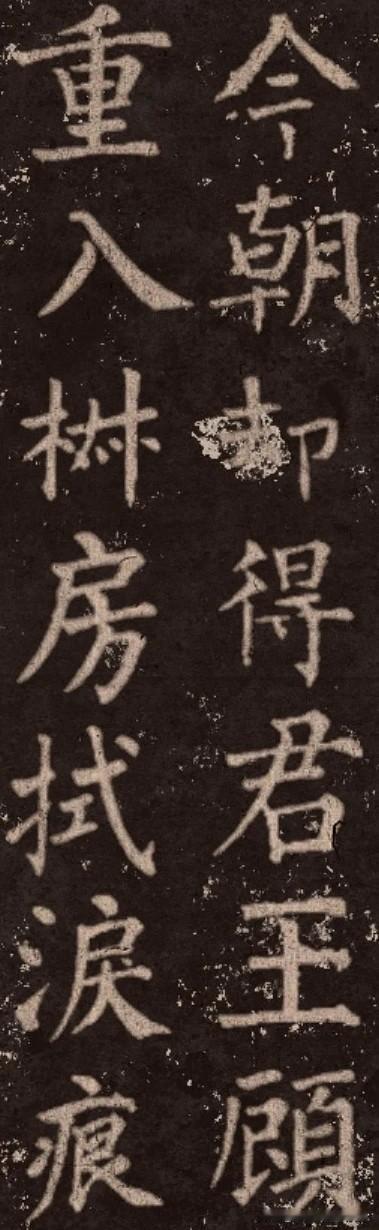 今朝却得君王顧
重入椒房拭淚痕